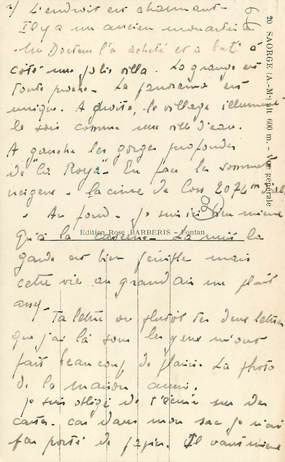 2/ L'endroit est charmant.
Il y a un ancien monastère
Un Docteur l'a acheté et a bati à
côté une jolie villa. La grande est
toute proche. Le panorama est
unique. A droite, le village illuminé
le soir comme une ville d'eau.
A gauche les gorges profondes
de "la Roya". En face la sommet
neigeux - la cime de 2074 m
Au fond. Je suis ici bien mieux
Edition Rose BARBERIS - Fontan
qu'à la caserne. La nuit la
garde est bien pénible mais
cette vie au grand air me plait
assez.
Ta lettre ou plutôt tes deux lettres
que j'ai là sous les yeux m'ont
fait beaucoup de plaisir. La photo
de la maison aussi.
Je suis obligé de t'écrire sur des
cartes car dans mon sac je n'ai
pas porté de papier. Il vaut mieux
20 SAORGE (A.-M.) alt. 600 m. - Vue générale